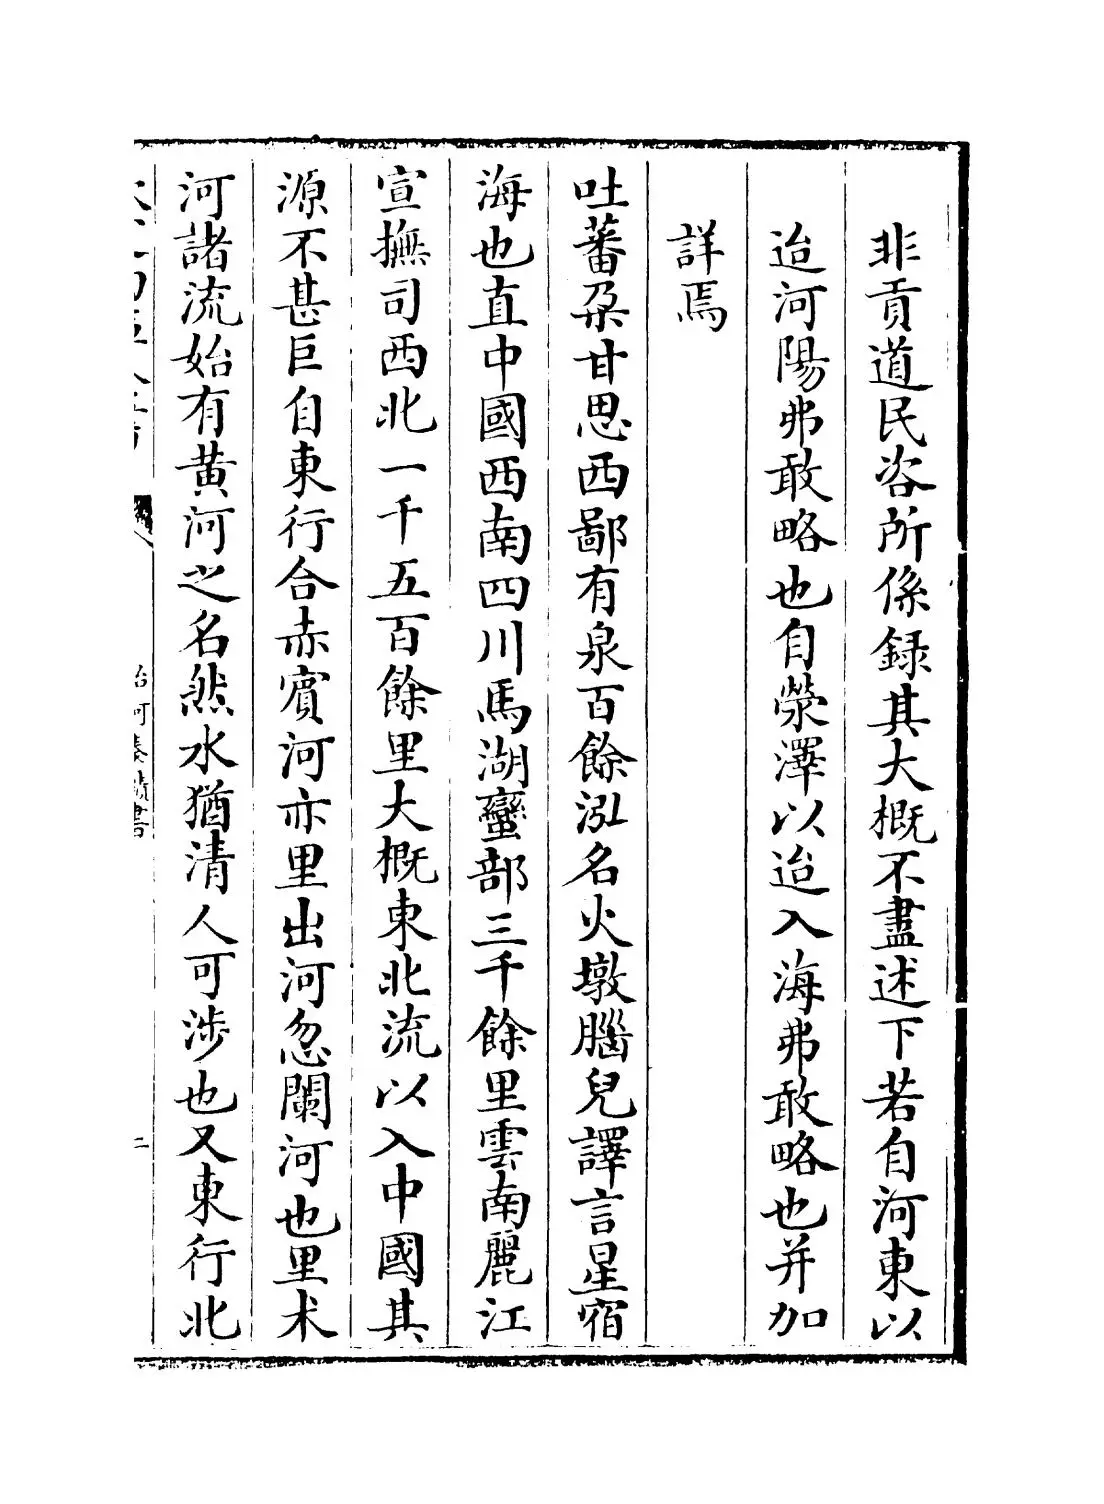 非貢道民咨所係錄其大概不盡述下若自河東以
迨河陽弗敢略也自滎澤以迨入海弗敢略也并加
詳焉
吐蕃朶甘思西鄙有泉百餘泓名火墩腦兒譯言星宿
海也直中國西南四川馬湖蠻部三千餘里雲南麗江
宣撫司西北一千五百餘里大概東北流以入中國其
源不甚巨自東行合赤賓河亦里出河忽闌河也里术
河諸流始有黄河之名然水猶清人可涉也又東行北
治河奏績書
二